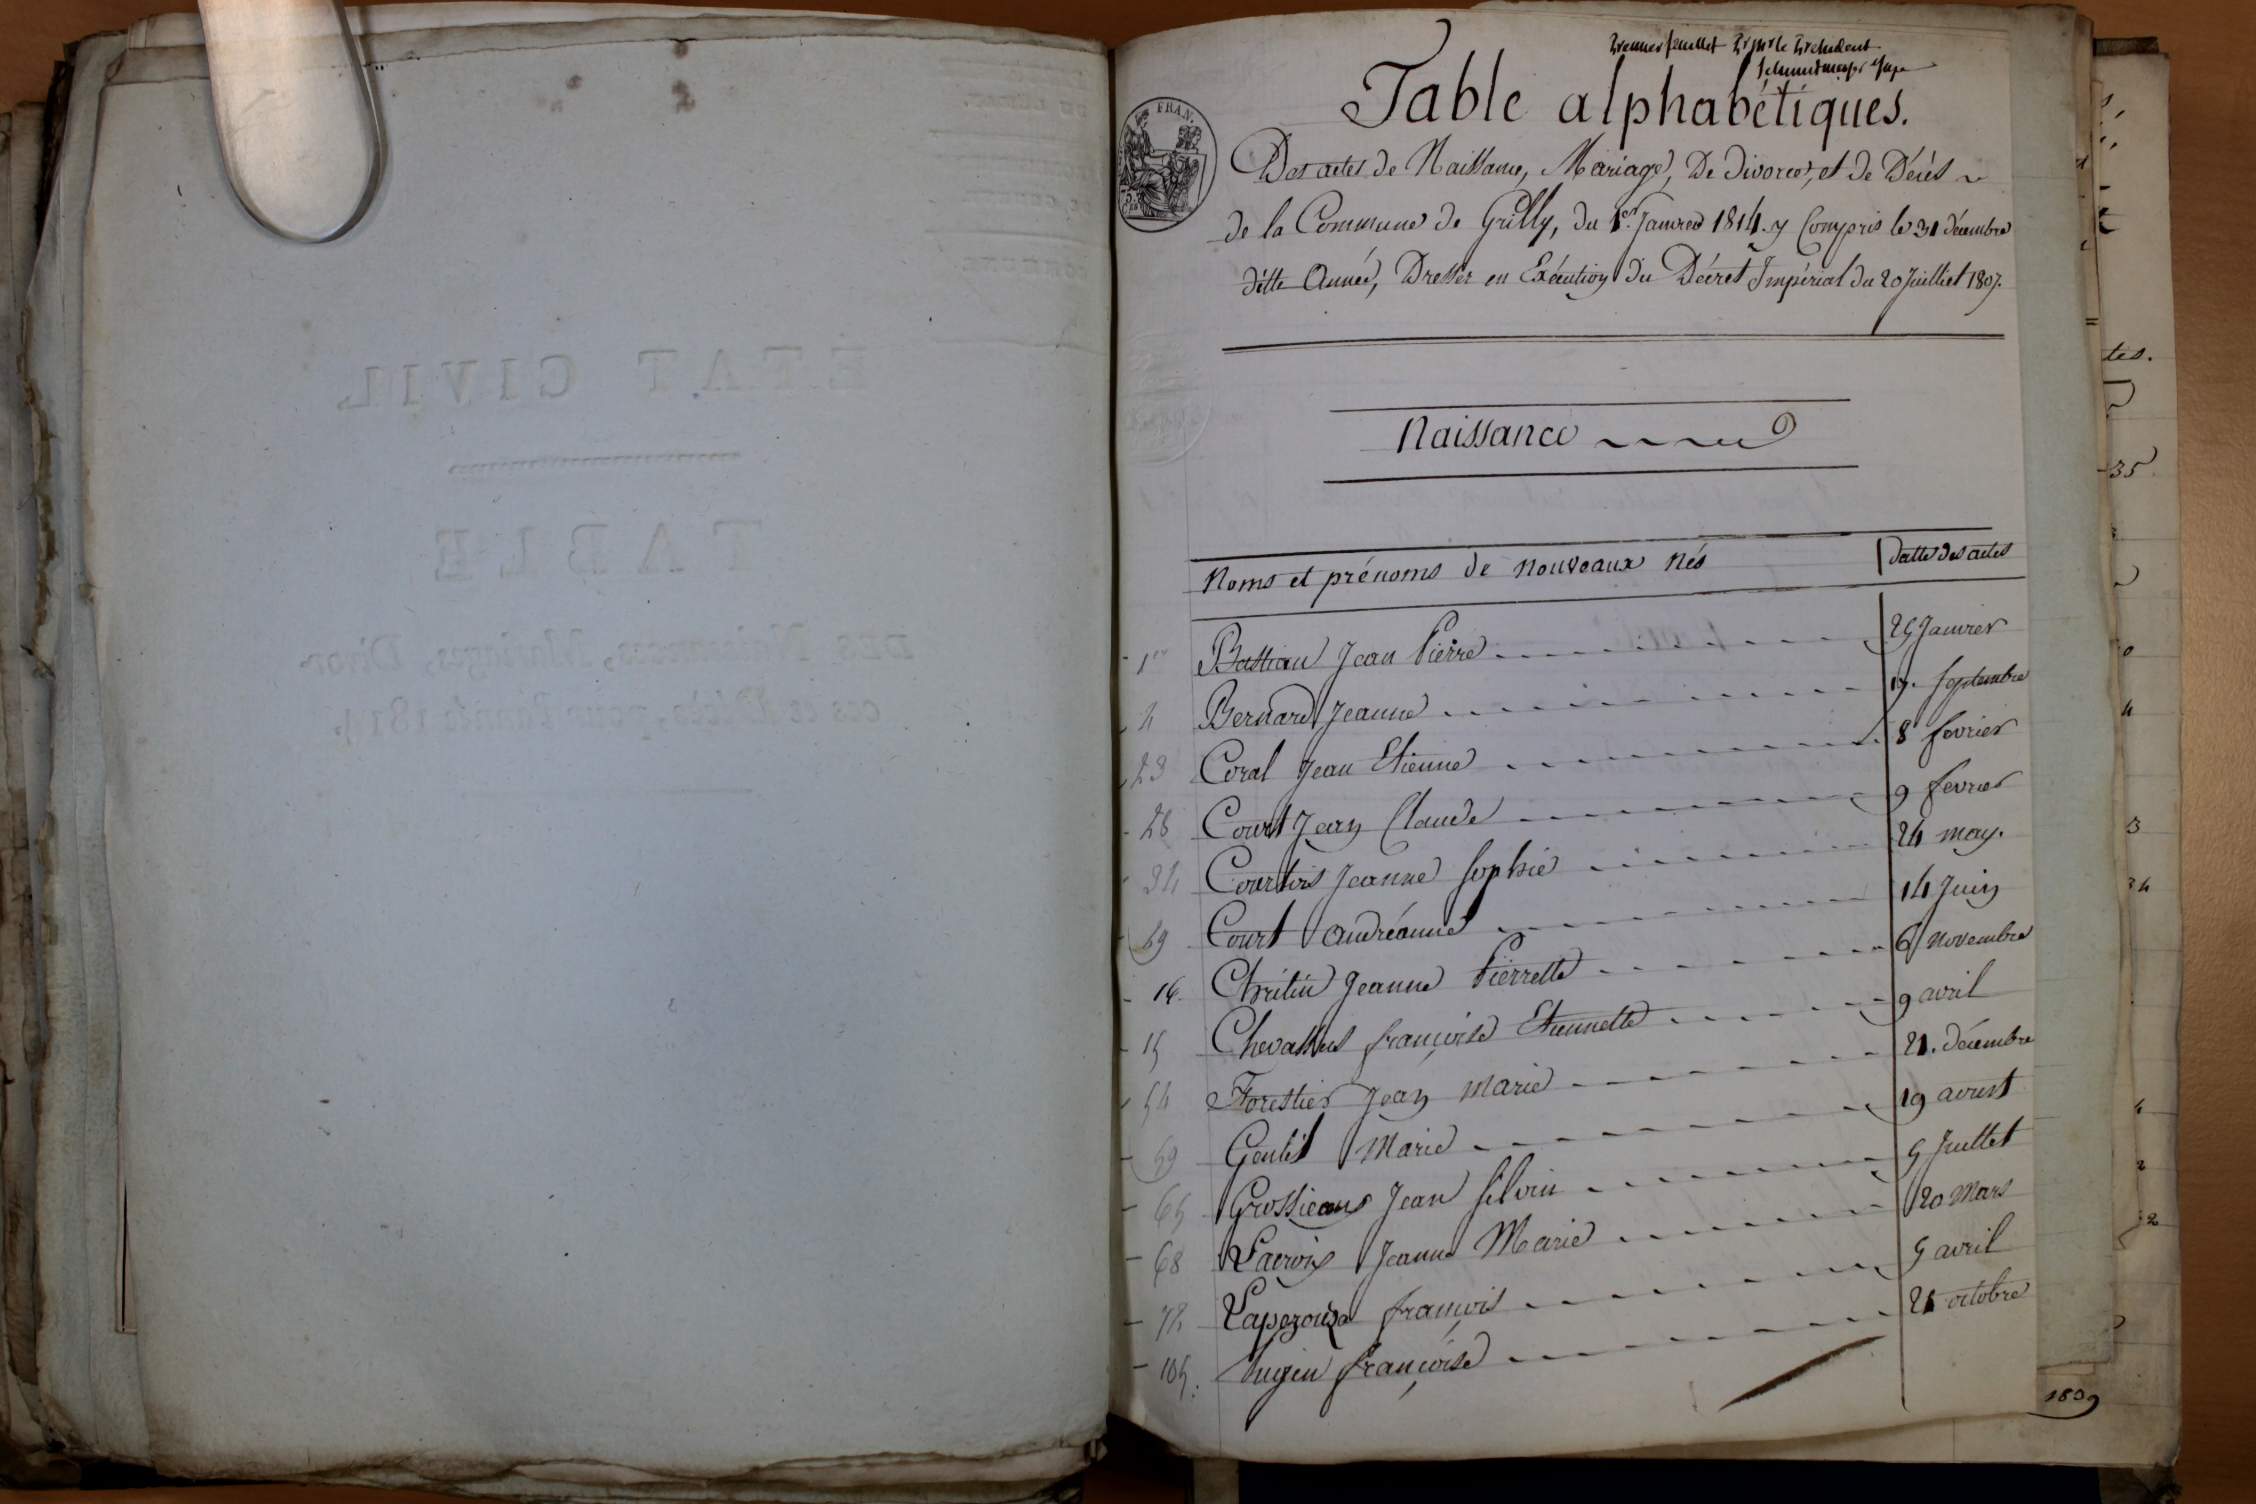 ÉTAT CIVIL.
TABLE
DES Naissances, Mariages, Divor-
ces et Décès, pour l'année 181
premier feuillet Pr Mr le President
FRAN.
Table alphabétiques.
Des actes de Naissance, Mariage, De Divorce, et de Décès
de la Commune de Grilly, du 1er Janvier 1814. y Compris le 31 décembre
ditte Année, Dresser en Exécution du Décret Impérial du 20 Juilliet 1807.
Naissance
Noms et prénoms de nouveaux Nés Datte des actes
1er Bastian Jean Pierre 25 Janvier
4 Bernard Jeanne 19. septembre
23 Coral Jean Etienne 8 fevrier
28 Court Jean Claude 9 fevrier
34 Courtois Jeanne Sophie 24 may.
49 Court Andréanne 14 Juin
16 Chritin Jeanne Pierrette 6 novembre
15 Chevassus françoise Etiennette 9 avril
54 Forestier Jean Marie 21. décembre
59 Gentil Marie 19 aoust
65 Grossiean Jean Silvin 5 Juillet
68 Lacroix Jeanne Marie 20 Mars
72 Laperouza françois 5 avril
105. françoise 21 octobre
tes.
35
0
4
3
34
4
2
2
1809